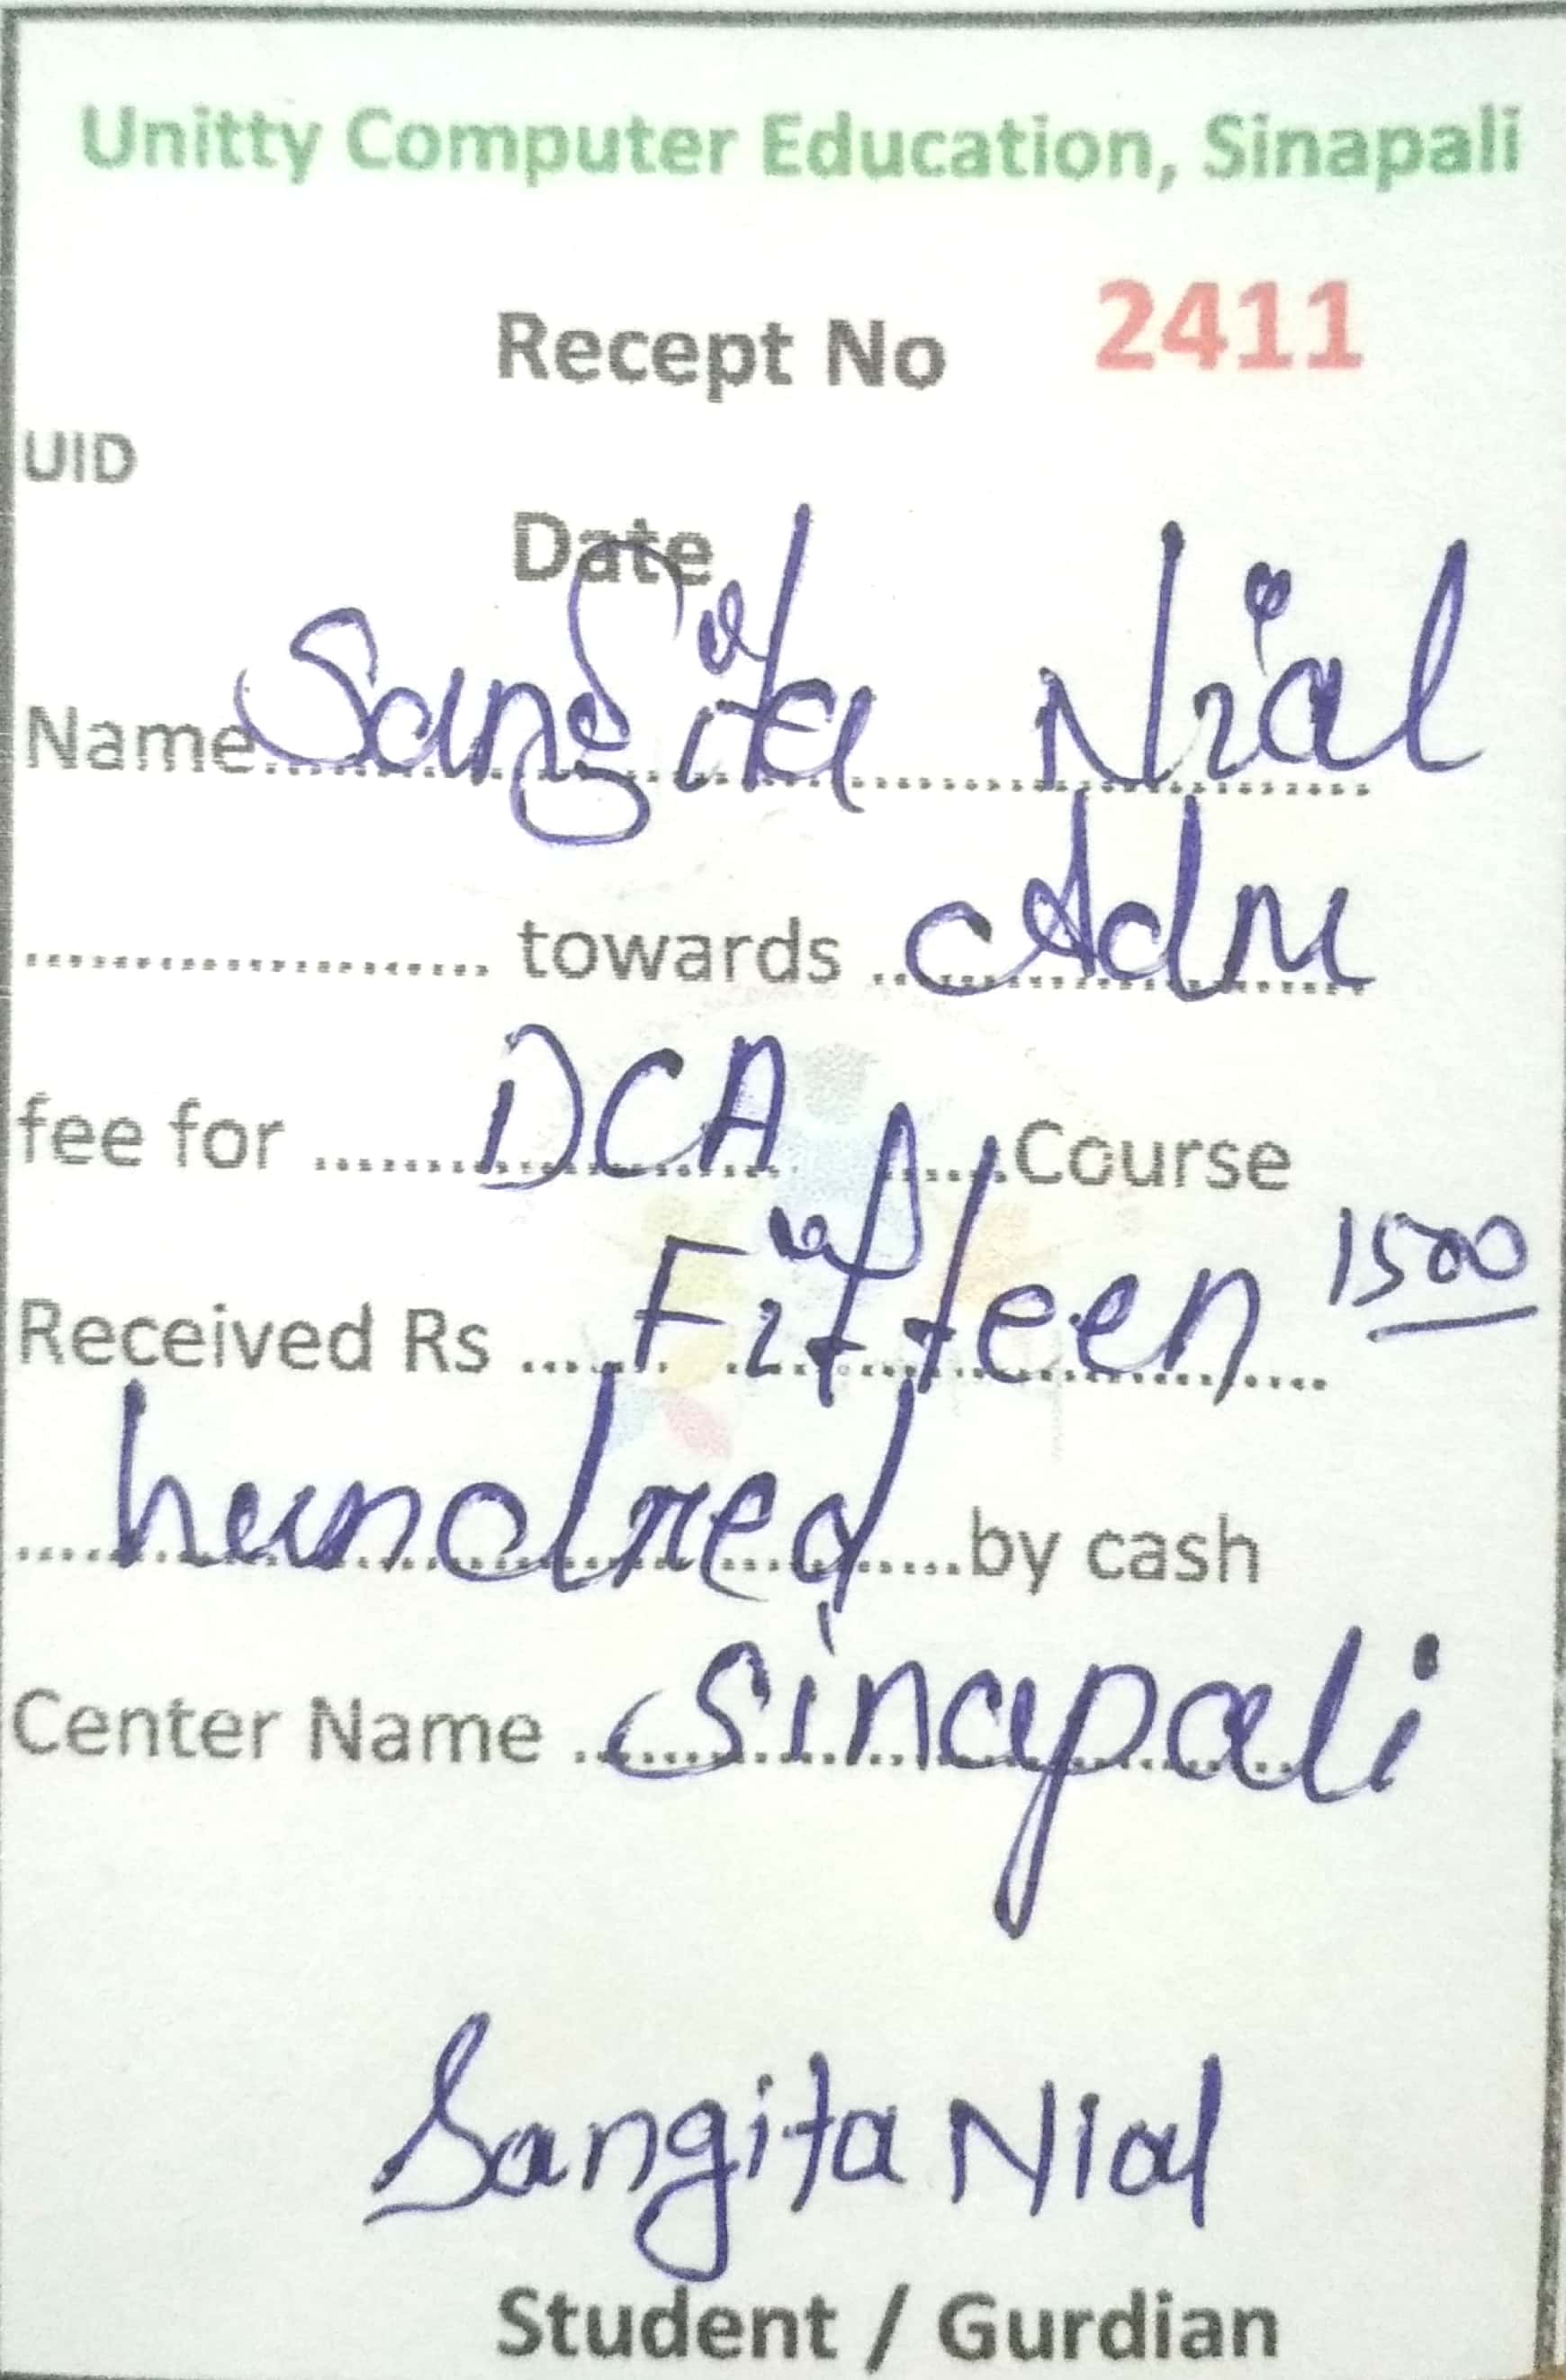 Unitty Computer Education, Sinapali
Recept No 2411
UID
Date
Name Sangita Nial
towards Adm
fee for DCA Course
Received Rs Fifteen 1500
hundred by cash
Center Name Sinapali
Sangita Nial
Student / Gurdian